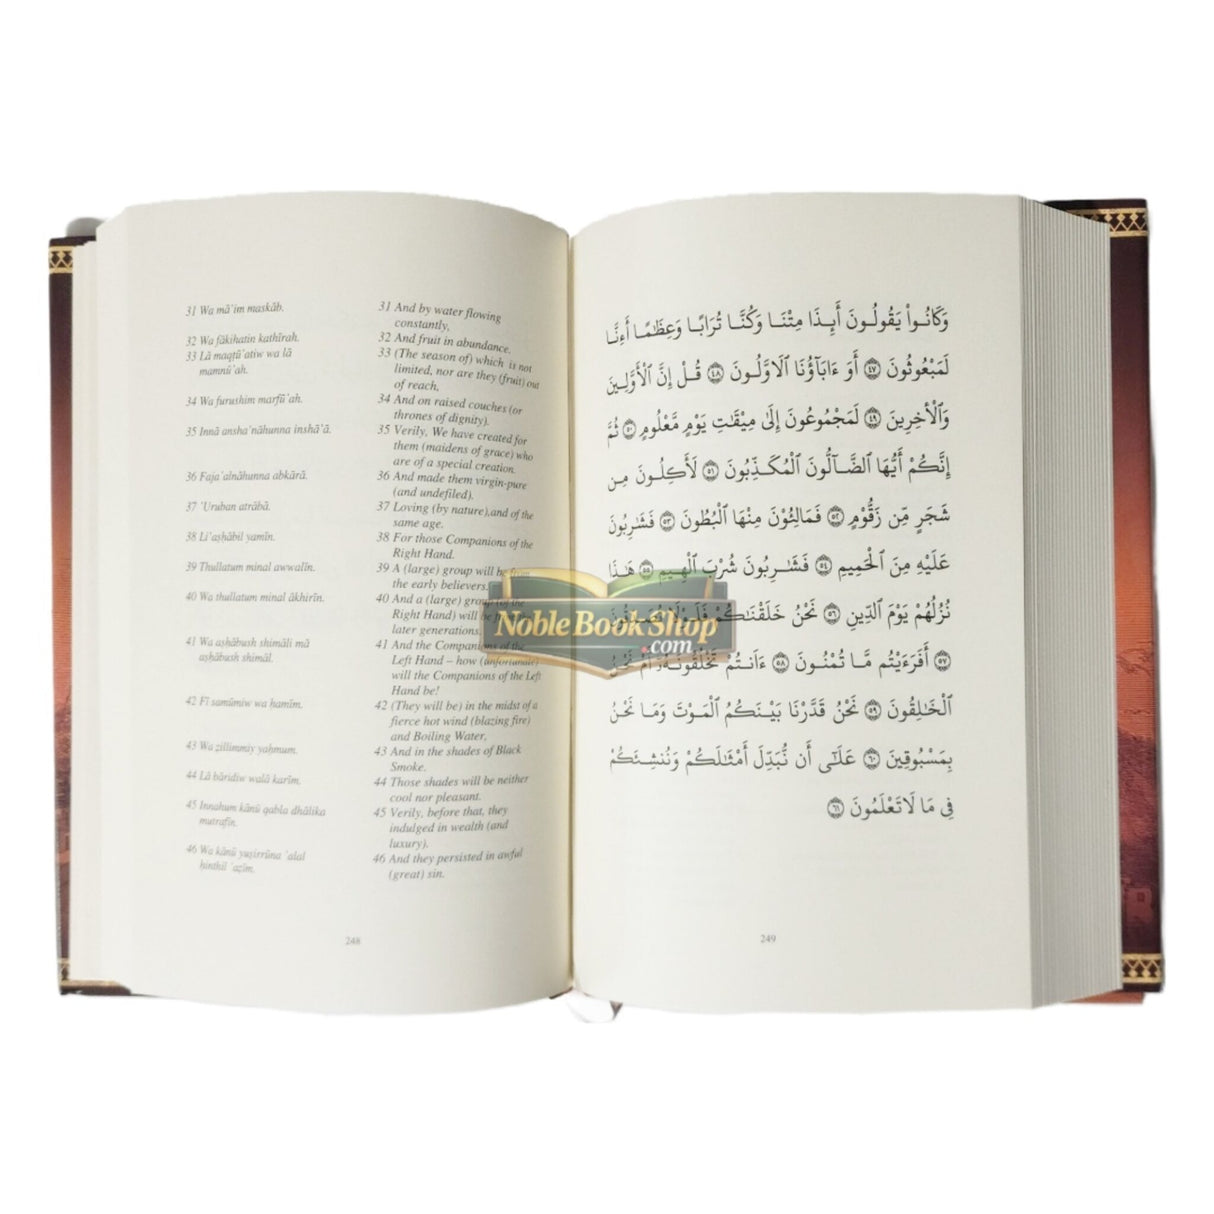 31 Wa mā'im maskāb.
32 Wa fākihatin kathīrah.
33 Lā maqṭū'atiw wa lā
mamnū'ah.
34 Wa furushim marfū'ah.
35 Innā ansha'nāhunna inshā'ā.
36 Faja'alnāhunna abkārā.
37 'Uruban atrābā.
38 Li'aṣḥābil yamīn.
39 Thullatum minal awwalīn.
40 Wa thullatum minal ākhirīn.
41 Wa aṣḥābush shimāli mā
aṣḥābush shimāl.
42 Fī samūmiw wa ḥamīm.
43 Wa ẓillimmiy yaḥmum.
44 Lā bāridiw walā karīm.
45 Innahum kānū qabla dhālika
mutrafīn.
46 Wa kānū yuṣirrūna 'alal
ḥinthil 'aẓīm.
31 And by water flowing
constantly,
32 And fruit in abundance.
33 (The season of) which is not
limited, nor are they (fruit) out
of reach,
34 And on raised couches (or
thrones of dignity).
35 Verily, We have created for
them (maidens of grace) who
are of a special creation.
36 And made them virgin-pure
(and undefiled).
37 Loving (by nature),and of the
same age.
38 For those Companions of the
Right Hand.
39 A (large) group will be from
the early believers.
40 And a (large) group (of the
Right Hand) will be
later generations.
41 And the Companions of the
Left Hand – how (unfortunate)
will the Companions of the Left
Hand be!
42 (They will be) in the midst of a
fierce hot wind (blazing fire)
and Boiling Water,
43 And in the shades of Black
Smoke.
44 Those shades will be neither
cool nor pleasant.
45 Verily, before that, they
indulged in wealth (and
luxury).
46 And they persisted in awful
(great) sin.
248
وَكَانُوا۟ يَقُولُونَ أَىِٕذَا مِتْنَا وَكُنَّا تُرَابًا وَعِظَٰمًا أَءِنَّا
لَمَبْعُوثُونَ ٤٧ أَوَ ءَابَآؤُنَا ٱلْأَوَّلُونَ ٤٨ قُلْ إِنَّ ٱلْأَوَّلِينَ
وَٱلْأَخِرِينَ ٤٩ لَمَجْمُوعُونَ إِلَىٰ مِيقَٰتِ يَوْمٍ مَّعْلُومٍ ٥٠ ثُمَّ
إِنَّكُمْ أَيُّهَا ٱلضَّآلُّونَ ٱلْمُكَذِّبُونَ ٥١ لَأَكِلُونَ مِن
شَجَرٍ مِّن زَقُّومٍ ٥٢ فَمَالِـُٔونَ مِنْهَا ٱلْبُطُونَ ٥٣ فَشَٰرِبُونَ
عَلَيْهِ مِنَ ٱلْحَمِيمِ ٥٤ فَشَٰرِبُونَ شُرْبَ ٱلْهِيمِ ٥٥ هَٰذَا
نُزُلُهُمْ يَوْمَ ٱلدِّينِ ٥٦ نَحْنُ خَلَقْنَٰكُمْ فَلَوْلَا تُصَدِّقُونَ
٥٧ أَفَرَءَيْتُم مَّا تُمْنُونَ ٥٨ ءَأَنتُمْ تَخْلُقُونَهُۥٓ أَمْ نَحْنُ
ٱلْخَٰلِقُونَ ٥٩ نَحْنُ قَدَّرْنَا بَيْنَكُمُ ٱلْمَوْتَ وَمَا نَحْنُ
بِمَسْبُوقِينَ ٦٠ عَلَىٰٓ أَن نُّبَدِّلَ أَمْثَٰلَكُمْ وَنُنشِئَكُمْ
فِى مَا لَا تَعْلَمُونَ ٦١
249
NobleBookShop
.com